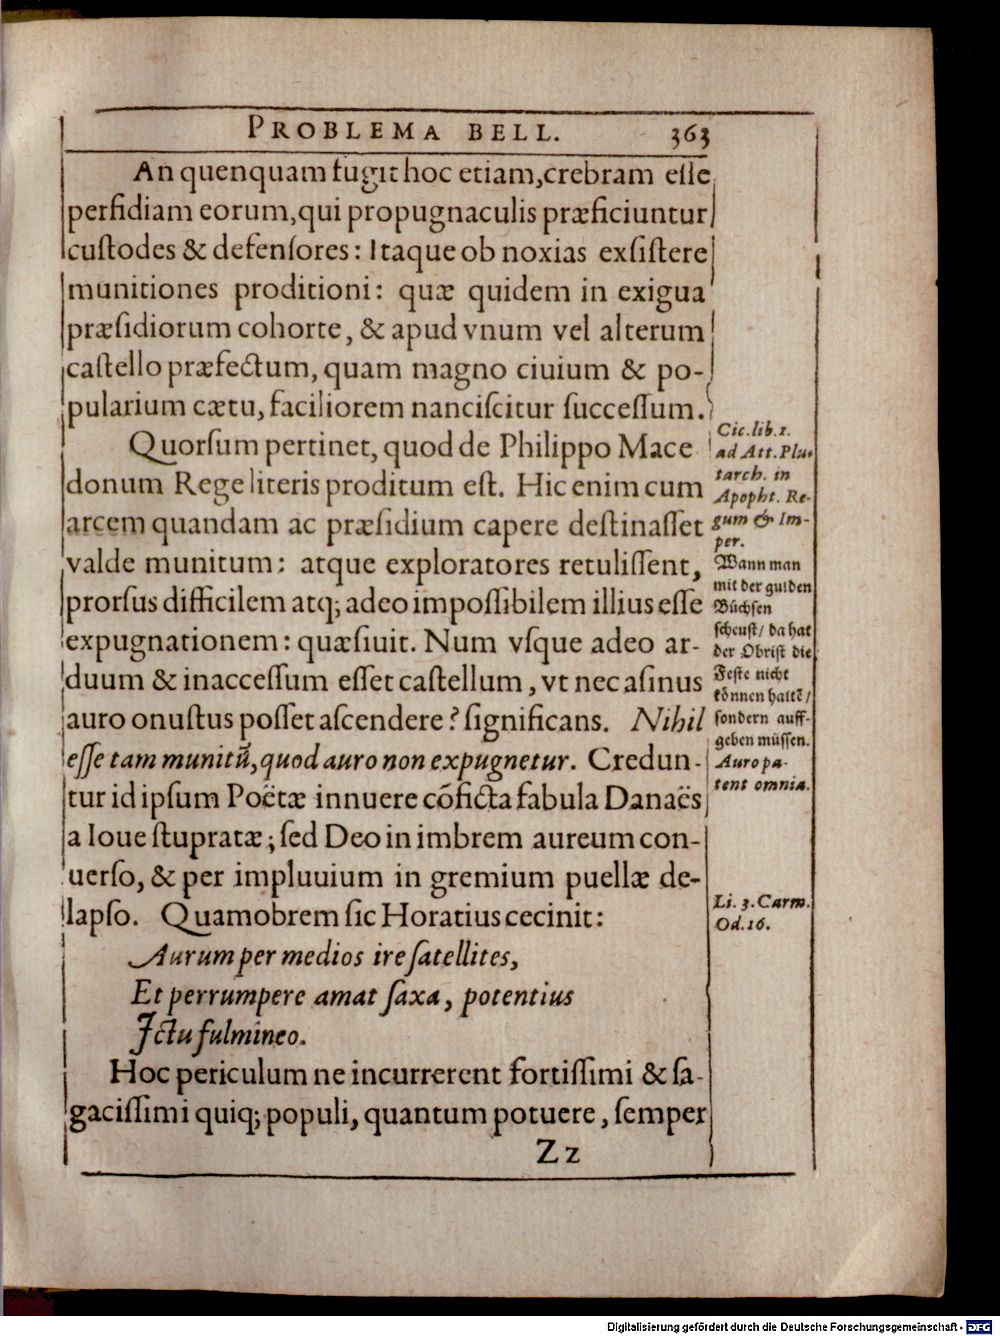 PROBLEMA BELL. 363
An quenquam fugit hoc etiam, crebram eſſe
perfidiam eorum, qui propugnaculis præficiuntur
cuſtodes & defenſores: Itaque ob noxias exſiſtere
munitiones proditioni: quæ quidem in exigua
præſidiorum cohorte, & apud vnum vel alterum
caſtello præfectum, quam magno ciuium & po-
pularium cætu, faciliorem nanciſcitur ſucceſſum.
Quorſum pertinet, quod de Philippo Mace
donum Rege literis proditum eſt. Hic enim cum
arcem quandam ac præſidium capere deſtinaſſet
valde munitum: atque exploratores retuliſſent,
prorſus difficilem atq; adeo impoſſibilem illius eſſe
expugnationem: quæſiuit. Num vſque adeo ar-
duum & inacceſſum eſſet caſtellum, vt nec aſinus
auro onuſtus poſſet aſcendere? ſignificans. Nihil
eſſe tam munitũ, quod auro non expugnetur. Credun-
tur id ipſum Poëtæ innuere cõficta fabula Danaës
a Ioue ſtupratæ; ſed Deo in imbrem aureum con-
uerſo, & per impluuium in gremium puellæ de-
lapſo. Quamobrem ſic Horatius cecinit:
Aurum per medios ire ſatellites,
Et perrumpere amat ſaxa, potentius
Ictu fulmineo.
Hoc periculum ne incurrerent fortiſſimi & ſa-
gaciſſimi quiq; populi, quantum potuere, ſemper
Zz
Cic. lib. 1.
ad Att. Plu-
tarch. in
Apopht. Re-
gum & Im-
per.
Wann man
mit der gulden
Büchſen
ſcheuſt/ da hat
der Obriſt die
Feſte nicht
können haltē/
ſondern auff-
geben müſſen.
Auro pa-
tent omnia.
Li. 3. Carm.
Od. 16.
Digitalisierung gefördert durch die Deutsche Forschungsgemeinschaft - DFG